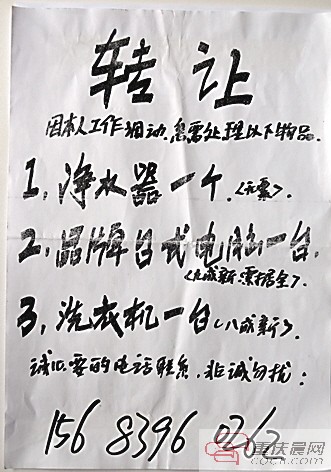 转让
因本人工作调动.急需处理以下物品.
1,净水器一个.
2.品牌台式电脑一台.
<九成新.票据全>.
3,洗衣机一台<八成新>.
诚心要的电话联系.非诚勿扰:
156 8396
重庆晨网